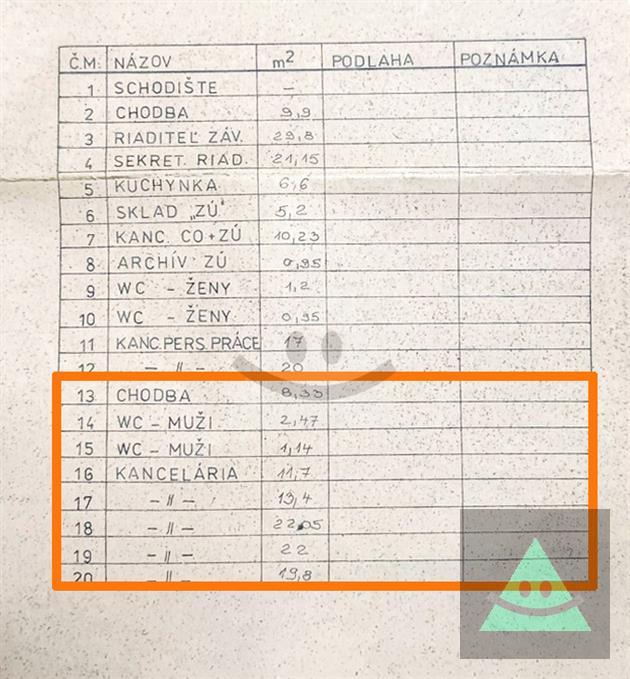 Č.M. NÁZOV m2 PODLAHA POZNÁMKA
1 SCHODIŠTE —
2 CHODBA 9,9
3 RIADITEĽ ZÁV. 29,8
4 SEKRET. RIAD. 21,15
5 KUCHYNKA 6,6
6 SKLAD „ZÚ" 5,2
7 KANC. CO+ZÚ 10,23
8 ARCHÍV ZÚ 0,95
9 WC - ŽENY 1,2
10 WC - ŽENY 0,95
11 KANC. PERS. PRÁCE 17
12 — 〃 — 20
13 CHODBA 8,33
14 WC - MUŽI 2,47
15 WC - MUŽI 1,14
16 KANCELÁRIA 11,7
17 — 〃 — 13,4
18 — 〃 — 22,05
19 — 〃 — 22
20 — 〃 — 19,8